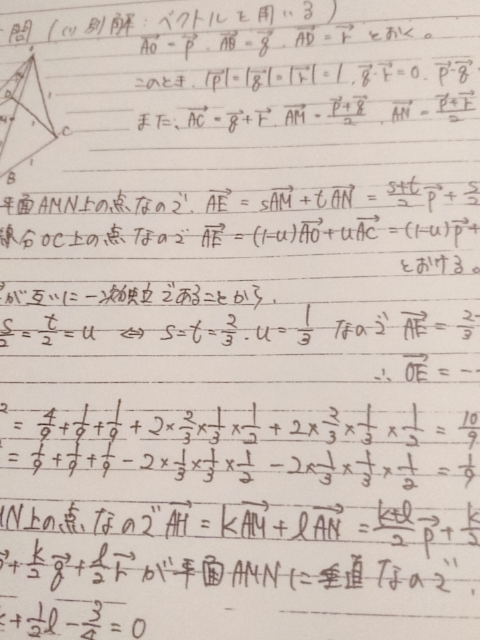 問(1)別解:ベクトルを用いる)
AO = p, AB = q, AD = r とおく。
このとき、|p|=|q|=|r|=1, q·r=0, p·q
また、AC = q+r, AM = (p+q)/2, AN = (p+r)/2
C
B
平面AMN上の点なので、AE = sAM + tAN = (s+t)/2 p + s/2
線分OC上の点なので AE = (1-u)AO + uAC = (1-u)p +
とおける。
が互いに一次独立であることから、
s/2 = t/2 = u ⇔ s=t=2/3, u=1/3 なので AE = 2/3
∴ OE = --
2 = 4/9 + 1/9 + 1/9 + 2×2/3×1/3×1/2 + 2×2/3×1/3×1/2 = 10/9
= 1/9 + 1/9 + 1/9 - 2×1/3×1/3×1/2 - 2×1/3×1/3×1/2 = 1/9
MN上の点なので AH = kAM + lAN = (k+l)/2 p + k/2
+ k/2 q + l/2 r が平面AMNに垂直なので、
k + 1/2 l - 3/4 = 0